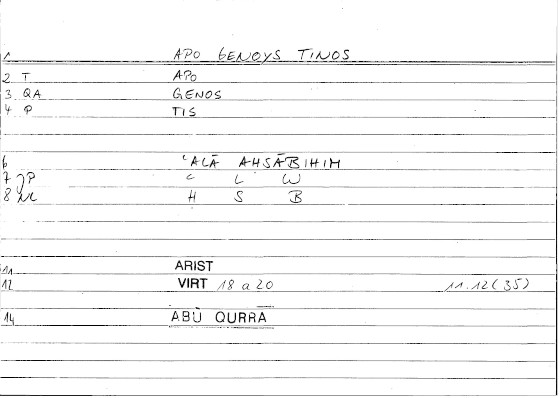 1 APO GENOYS TINOS
2 T APO
3 QA GENOS
4 P TIS
6 ʿALĀ AHSĀBIHIM
7 JP ʿ L W
8 NL H S B
11 ARIST
12 VIRT 18 a 20 11.12(35)
14 ABŪ QURRA